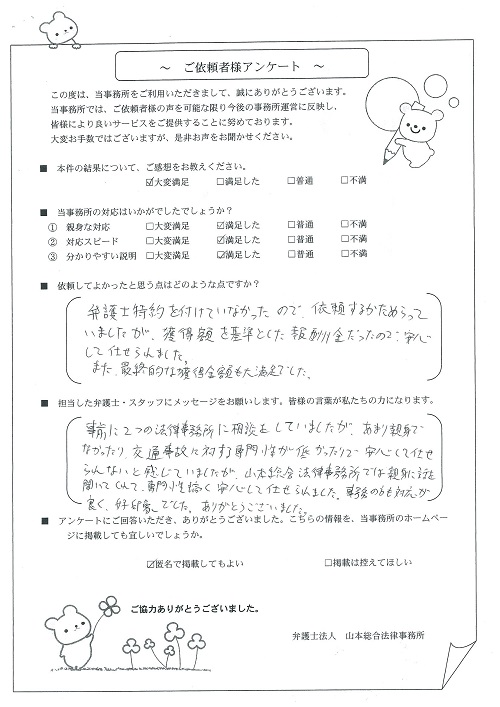 ～ ご依頼者様アンケート ～
この度は、当事務所をご利用いただきまして、誠にありがとうございます。
当事務所では、ご依頼者様の声を可能な限り今後の事務所運営に反映し、
皆様により良いサービスをご提供することに努めております。
大変お手数ではございますが、是非お声をお聞かせください。
■ 本件の結果について、ご感想をお教えください。
☑大変満足 □満足した □普通 □不満
■ 当事務所の対応はいかがでしたでしょうか？
① 親身な対応 □大変満足 ☑満足した □普通 □不満
② 対応スピード □大変満足 ☑満足した □普通 □不満
③ 分かりやすい説明 □大変満足 ☑満足した □普通 □不満
■ 依頼してよかったと思う点はどのような点ですか？
弁護士特約を付けていなかったので、依頼するかためらって
いましたが、獲得額を基準とした報酬金だったので、安心
して任せられました。
また、最終的な獲得金額も大満足でした。
■ 担当した弁護士・スタッフにメッセージをお願いします。皆様の言葉が私たちの力になります。
事前に2つの法律事務所に相談をしていましたが、あまり親身で
なかったり、交通事故に対する専門性が低かったりで安心して任せ
られないと感じていましたが、山本総合法律事務所では親身に話を
聞いてくれて、専門性も高く安心して任せられました。事務の方も対応が
良く、好印象でした。ありがとうございました。
■ アンケートにご回答いただき、ありがとうございました。こちらの情報を、当事務所のホームペー
ジに掲載しても宜しいでしょうか。
☑匿名で掲載してもよい □掲載は控えてほしい
ご協力ありがとうございました。
弁護士法人 山本総合法律事務所